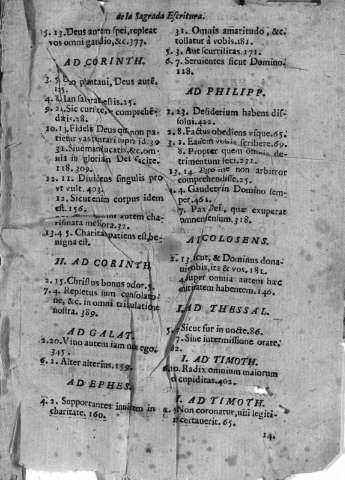 de la Sagrada Escritura.
5. 13. Deus autem spei, repleat
vos omni gaudio, &c. 377.
AD CORINTH.
3. plantavi, Deus autē.
4. 25.
9. 24. Sic currite, comprehē
datis. 28.
10. 13. Fidelis Deus qui non pa
tietur vos
31. Sive manducatis, &c. om-
nia in gloriam Dei facite.
118. 309.
12. 11. Dividens singulis pro
ut vult. 403.
12. Sicut enim corpus idem
est. 156.
autem cha-
rismata meliora. 32.
13. 4. 5. Charitas patiens est, be-
nigna est.
II. AD CORINTH
2. 15. Christus bonus odor. 5.
7. 4. Repletus sum consolatio
ne, &c. in omni tribulatione
nostra. 389.
AD GALAT.
2. 20. Vivo autem iam non ego.
345.
6. 2. Alter alterius. 159.
AD EPHES.
4. 2. Supportantes invicem in
charitate. 160.
31. Omnis amaritudo, &c.
tollatur à vobis. 181.
5. 3. Aut scurrilitas. 171.
6. 7. Servientes sicut Domino.
128.
AD PHILIPP.
1. 23. Desiderium habens dis-
solui. 422.
2. 8. Factus obediens usque. 65.
3. 1. Eadem vobis scribere. 69.
8. Propter quem omnia de-
trimentum feci. 231.
13. 14. Ego me non arbitror
comprehendisse. 25.
4. 4. Gaudete in Domino sem-
per. 462.
7. Pax Dei, quæ exuperat
omnem sensum. 318.
AD COLOSENS.
2. 13. sicut, & Dominus dona-
vit vobis, ita & vos. 181.
4 super omnia autem hæc
charitatem habentem. 146.
I. AD THESSAL.
5. 2 Sicut fur in nocte. 86.
7. Sine intermissione orate.
62.
I. AD TIMOTH.
6. 10. Radix omnium malorum
est cupiditas. 402.
I. AD TIMOTH.
2. 5 Non coronatur, nisi legiti-
mè certaverit. 65.
14.